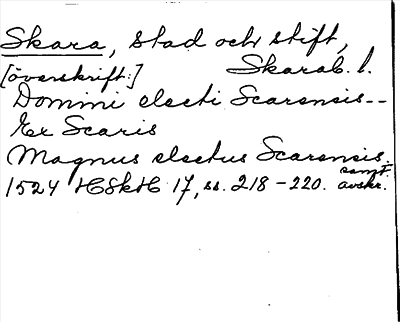 Skara, stad och stift,
[överskrift:] Skarab. l.
Domini electi Scarensis--
Ex Scaris
Magnus electus Scarensis.
1524 HSkH 17, ss. 218-220. samt. avskr.